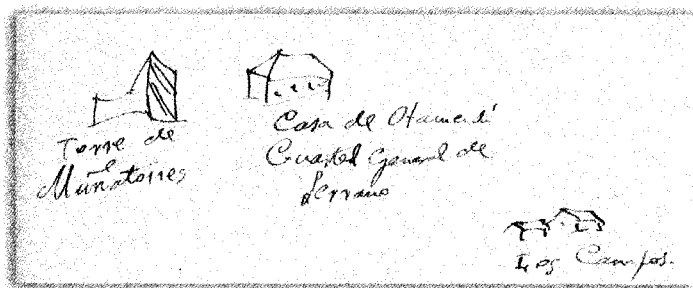 Torre de
Muñatones
Casa de Otamendi
Cuartel General de
Serrano
Los Campos.